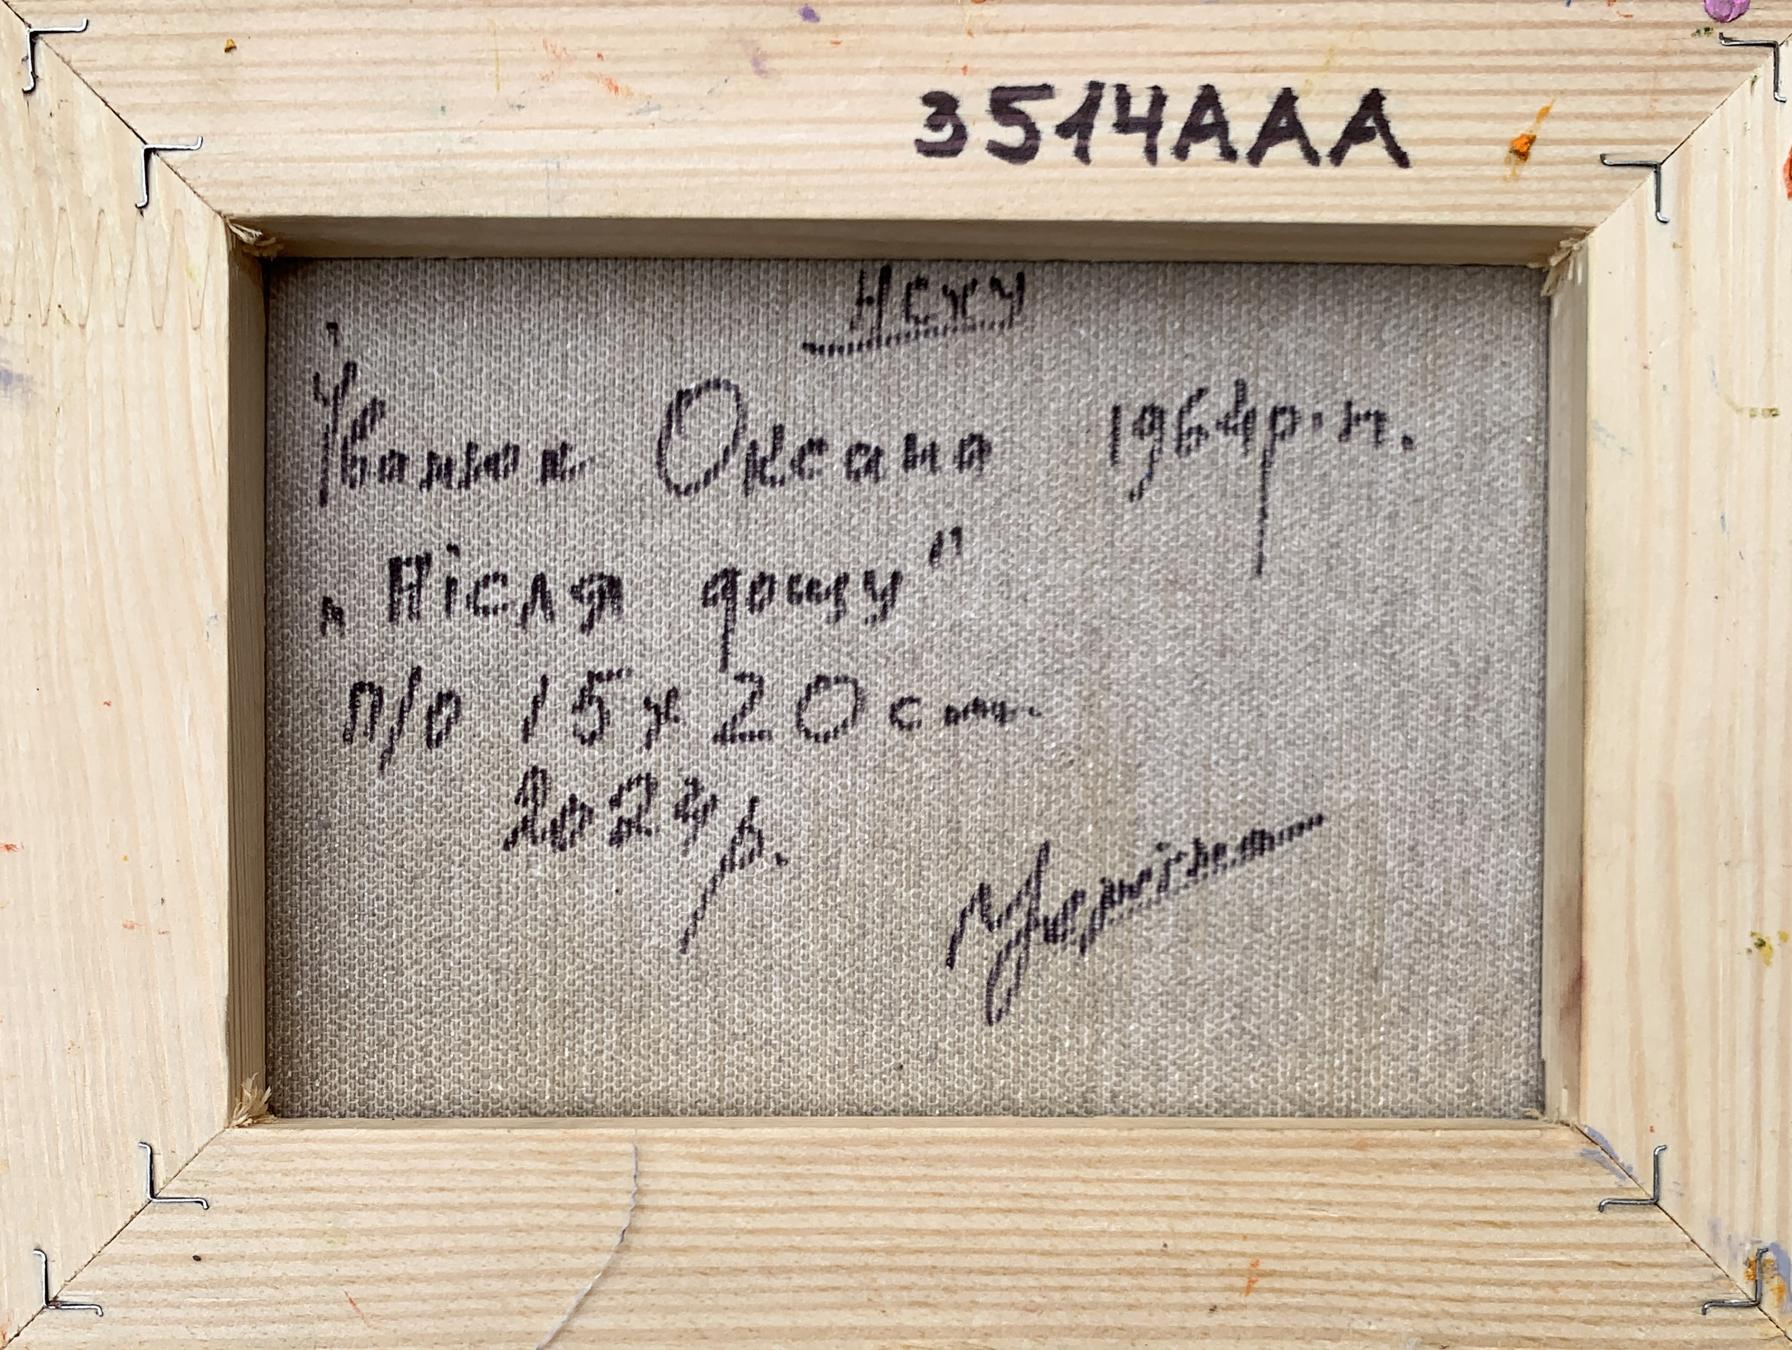 3514AAA
НСХУ
Іванюк Оксана 1964р.н.
„Після дощу"
п/о 15х20см.
2024р.